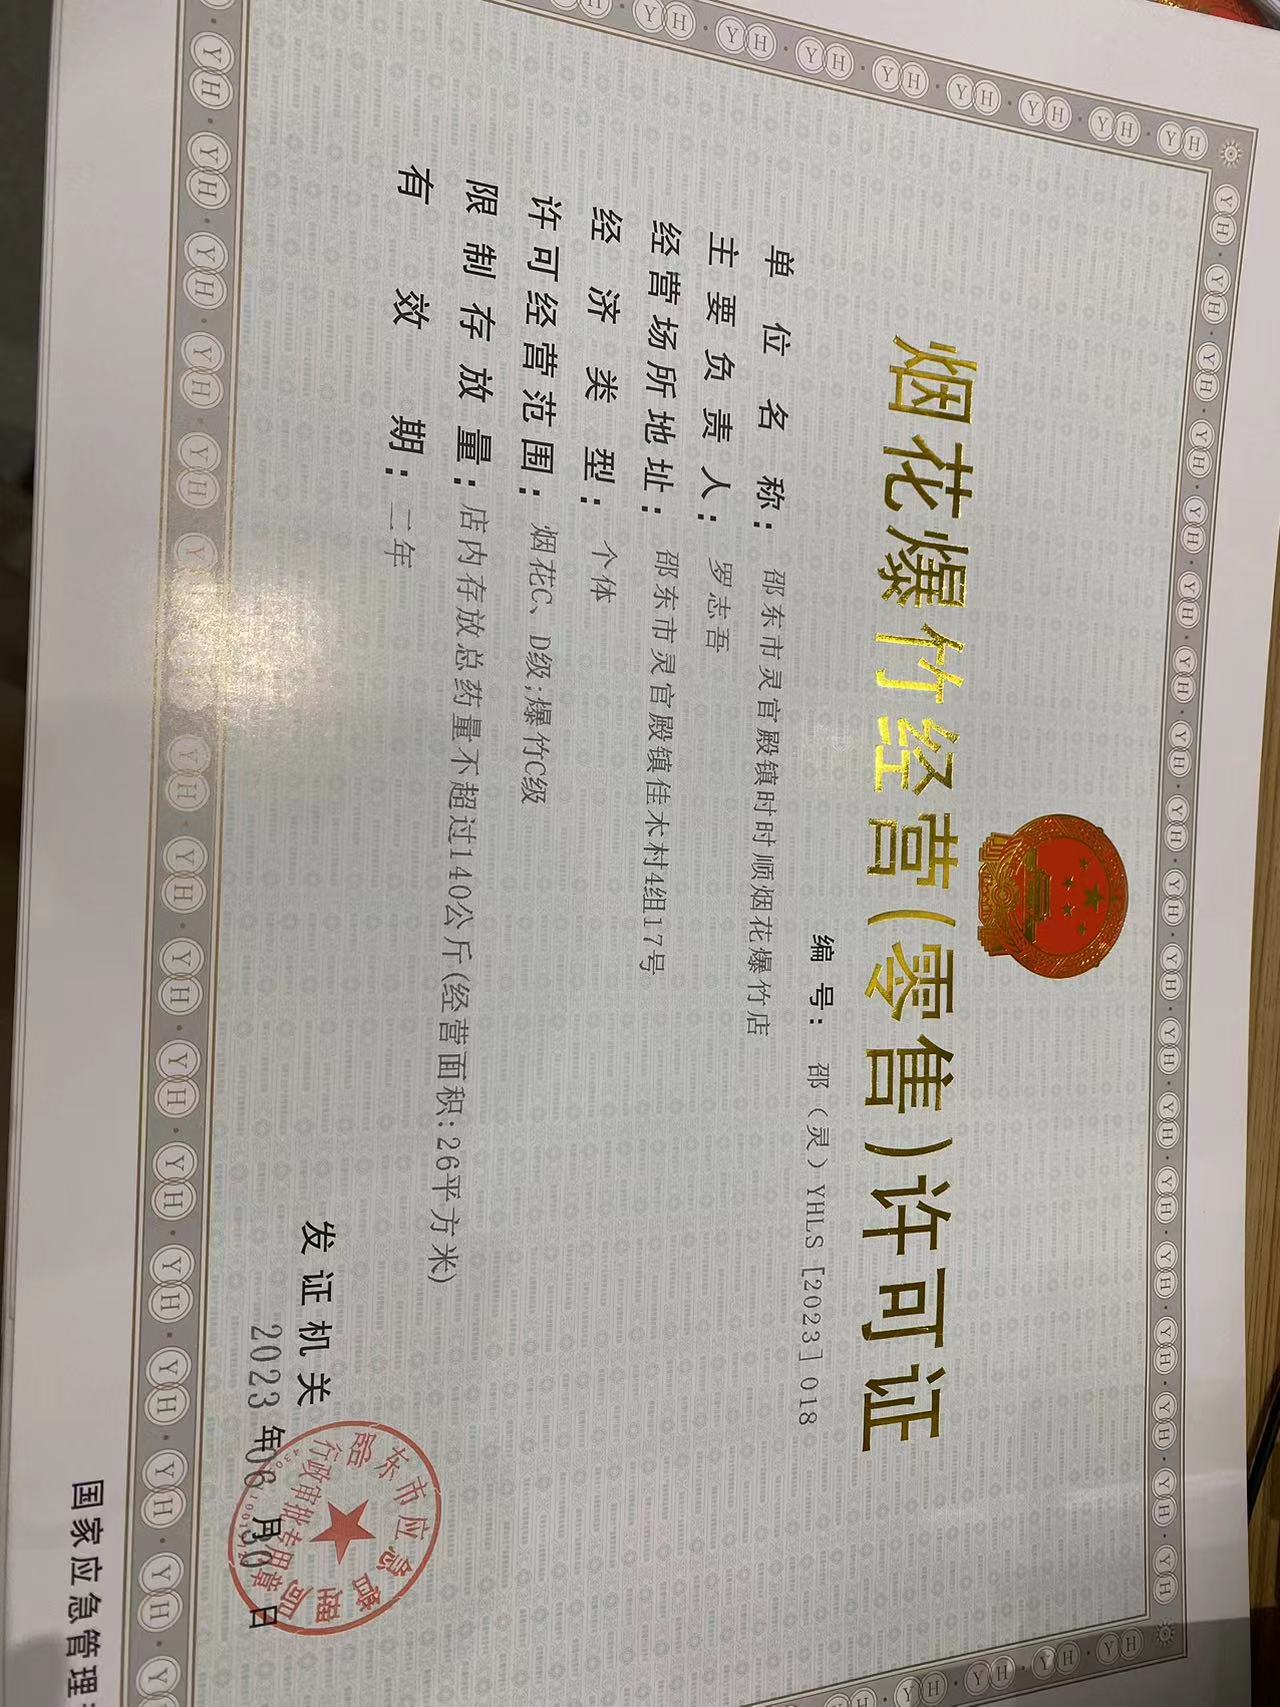 烟花爆竹经营(零售)许可证
编号：邵（灵）YHLS [2023] 018
单位名称：邵东市灵官殿镇时时顺烟花爆竹店
主要负责人：罗志吾
经营场所地址：邵东市灵官殿镇佳木村4组17号
经济类型：个体
许可经营范围：烟花C、D级;爆竹C级
限制存放量：店内存放总药量不超过140公斤(经营面积:26平方米)
有效期：二年
发证机关
2023年06月30日
邵东市应急管理局
行政审批专用章
国家应急管理